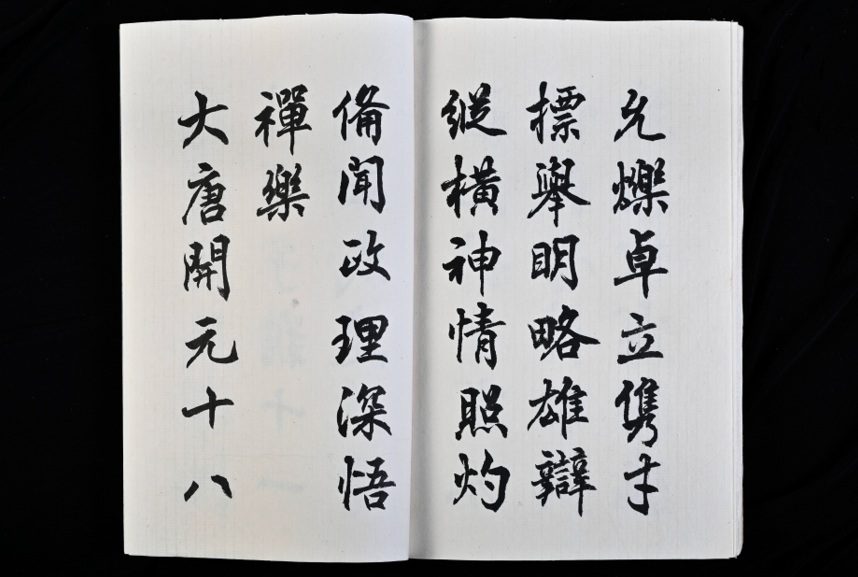 允爍卓立雋才
標舉明略雄辯
縱橫神情照灼
備聞政理深悟
禪樂
大唐開元十八